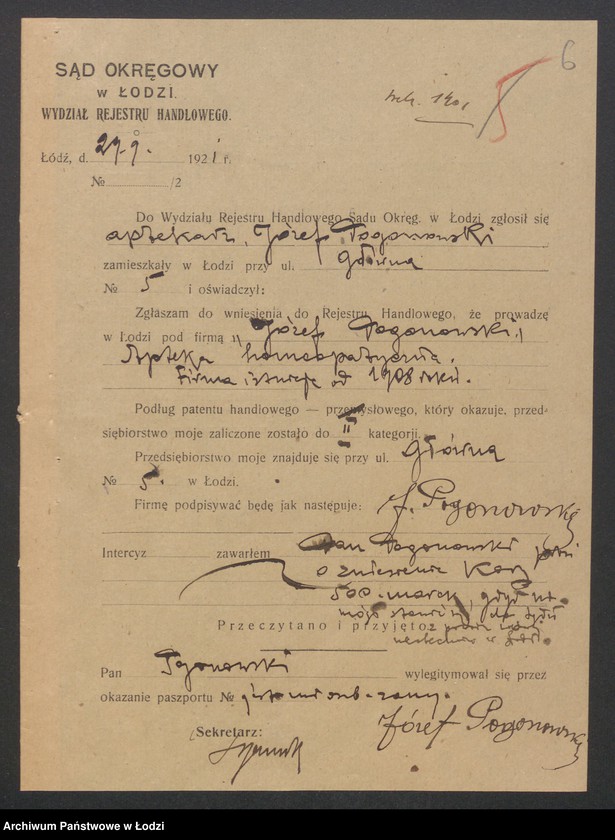 6
SĄD OKRĘGOWY
W ŁODZI.
WYDZIAŁ REJESTRU HANDLOWEGO.
5
Łódź, d. 27.9. 1921 r.
№ /2
Do Wydziału Rejestru Handlowego Sądu Okręg. w Łodzi zgłosił się
aptekarz, Józef Pogonowski
zamieszkały w Łodzi przy ul. Główna
№ 5 i oświadczył:
Zgłaszam do wniesienia do Rejestru Handlowego, że prowadzę
w Łodzi pod firmą „Józef Pogonowski,
Apteka homeopatyczna.
Firma istnieje od 1908 roku.
Podług patentu handlowego — przemysłowego, który okazuje, przed-
siębiorstwo moje zaliczone zostało do II kategorji.
Przedsiębiorstwo moje znajduje się przy ul. Główna
№ 5. w Łodzi.
Firmę podpisywać będę jak następuje: J. Pogonowski
Intercyz zawarłem Pan Pogonowski prosi
o zniesienie kary
500 marek, gdyż nie
mógł stawić się
Przeczytano i przyjęto
w Łodzi.
Pan Pogonowski wylegitymował się przez
okazanie paszportu № jest mi osob. znany.
Sekretarz: Józef Pogonowski
Archiwum Państwowe w Łodzi